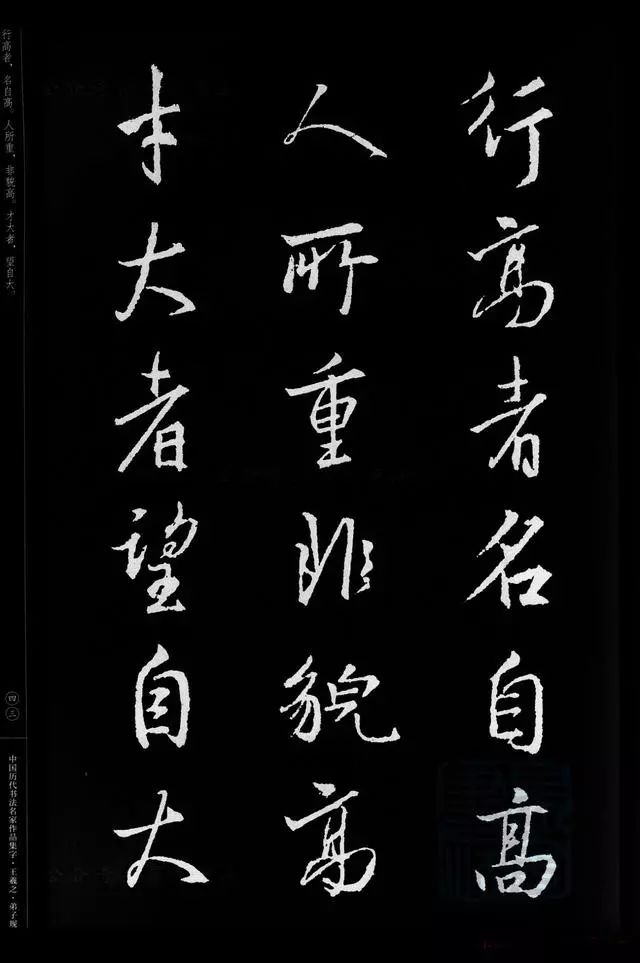 行高者名自高
人所重非貌高
才大者望自大
行高者，名自高。人所重，非貌高。才大者，望自大。
四三
中国历代书法名家作品集字·王羲之·弟子规